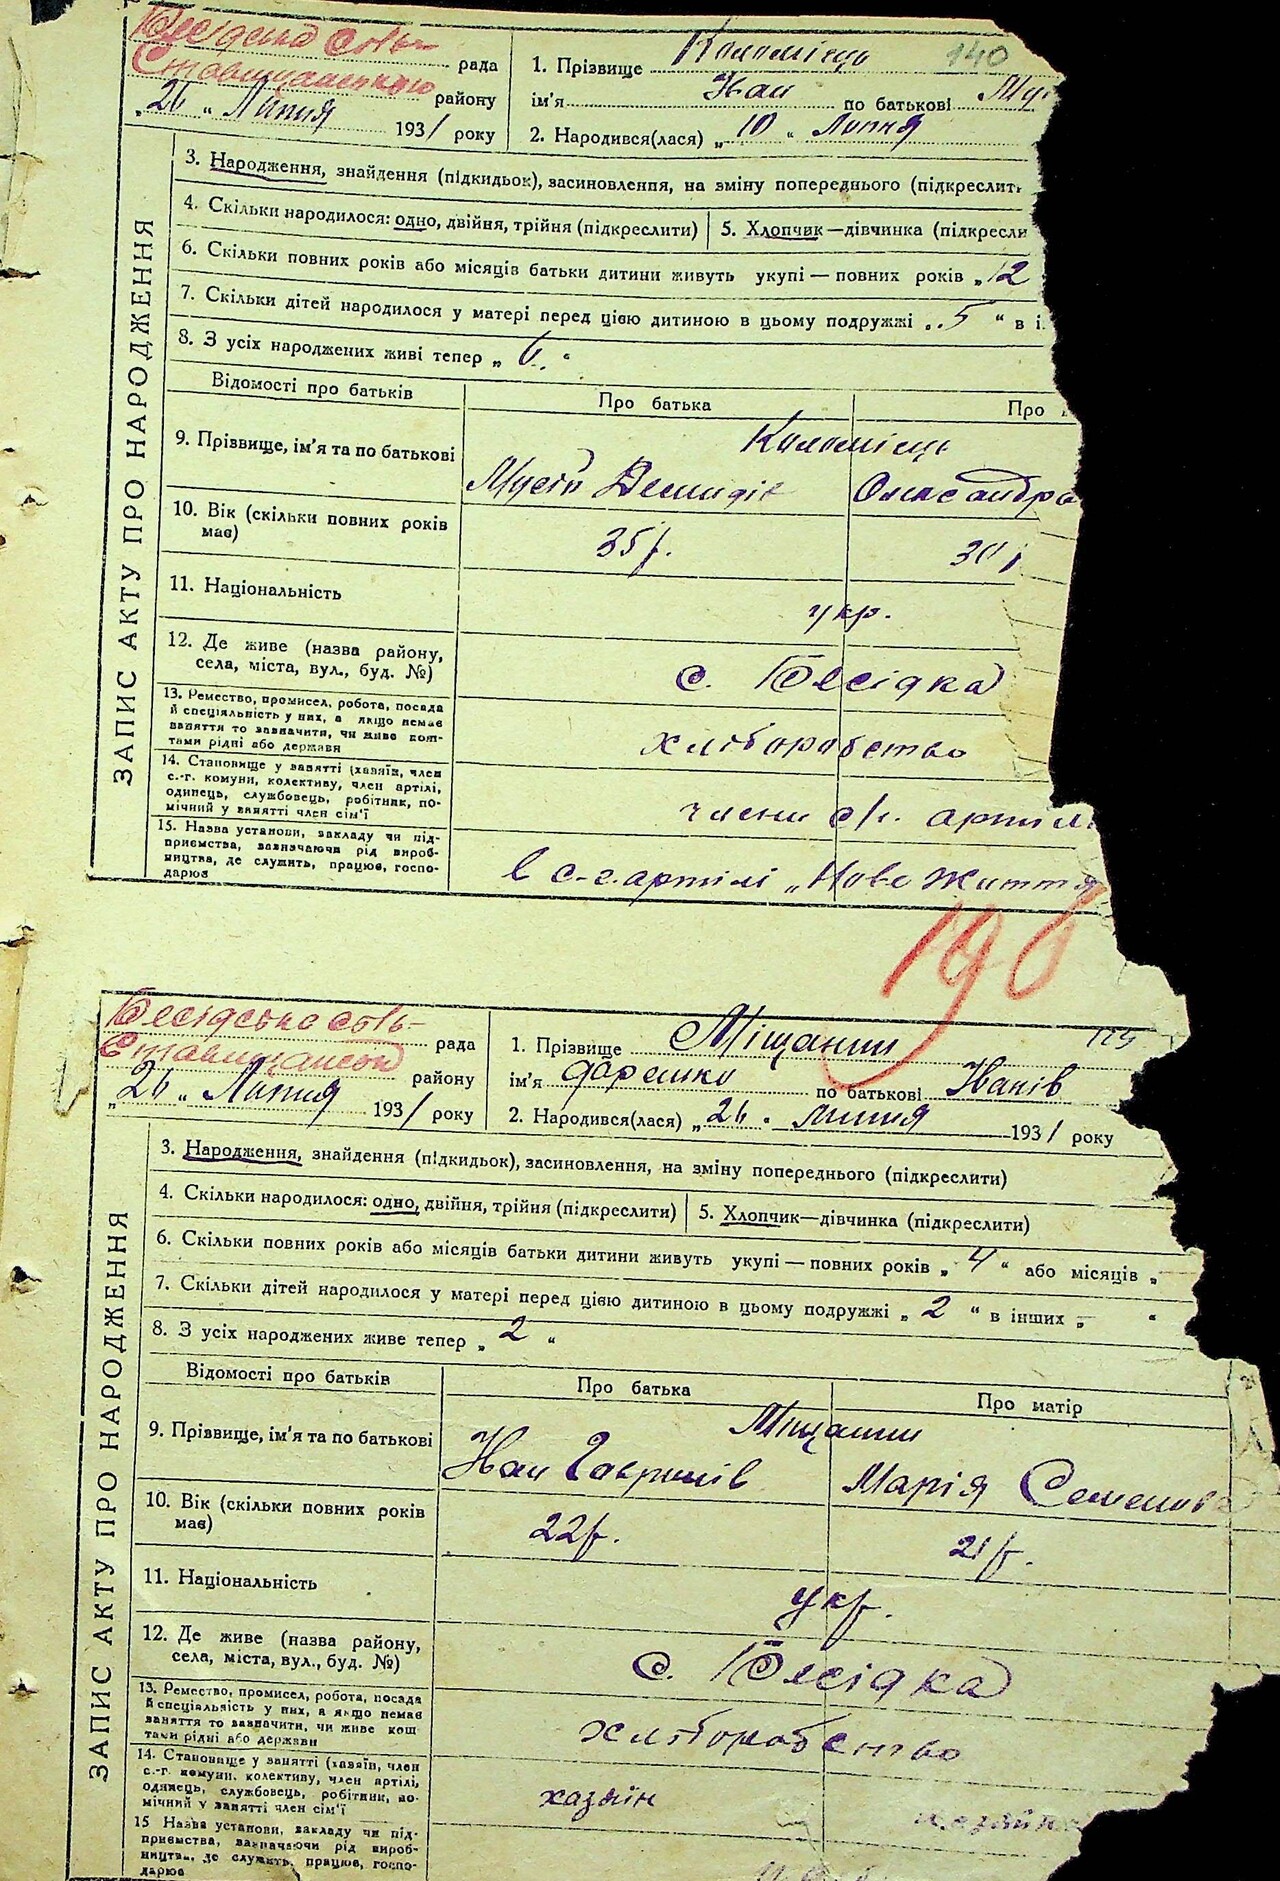 Бесідська сіль-
рада
Ставищанською
району
„26“ Липня 1931 року
140
1. Прізвище Коломієць
ім'я Иван по батькові
2. Народився(лася) „10“ Липня
ЗАПИС АКТУ ПРО НАРОДЖЕННЯ
3. Народження, знайдення (підкидьок), засиновлення, на зміну попереднього (підкреслит
4. Скільки народилося: одно, двійня, трійня (підкреслити) 5. Хлопчик—дівчинка (підкресли
6. Скільки повних років або місяців батьки дитини живуть укупі — повних років „12
7. Скільки дітей народилося у матері перед цією дитиною в цьому подружжі „5“ в і
8. З усіх народжених живі тепер „6“
Відомості про батьків Про батька Про
9. Прізвище, ім'я та по батькові Коломієць
Мусій Демидів Олександра
10. Вік (скільки повних років має) 35 р. 30 р
11. Національність укр.
12. Де живе (назва району,
села, міста, вул., буд. №) с. Бесідка
13. Ремество, промисел, робота, посада
й спеціяльність у них, а якщо немає
заняття то зазначити, чи живе кош-
тами рідні або держави хліборобство
14. Становище у занятті (хазяїн, член
с.-г. комуни, колективу, член артілі,
одинець, службовець, робітник, по-
мічний у занятті член сім'ї члени с/г. артілі
15. Назва установи, закладу чи під-
приємства, зазначаючи рід вироб-
ництва, де служить, працює, госпо-
дарює в с.-г. артілі „Нове Життя
196
Бесідська сіль-
рада
району
„26“ Липня 1931 року
1. Прізвище Міщанин
ім'я по батькові Иванів
2. Народився(лася) „26“ липня 1931 року
ЗАПИС АКТУ ПРО НАРОДЖЕННЯ
3. Народження, знайдення (підкидьок), засиновлення, на зміну попереднього (підкреслити)
4. Скільки народилося: одно, двійня, трійня (підкреслити) 5. Хлопчик—дівчинка (підкреслити)
6. Скільки повних років або місяців батьки дитини живуть укупі — повних років „4“ або місяців „
7. Скільки дітей народилося у матері перед цією дитиною в цьому подружжі „2“ в інших „–“
8. З усіх народжених живе тепер „2“
Відомості про батьків Про батька Про матір
9. Прізвище, ім'я та по батькові Міщанин
Иван Гаврилів Марія Семенова
10. Вік (скільки повних років має) 22 р. 21 р.
11. Національність укр.
12. Де живе (назва району,
села, міста, вул., буд. №) с. Бесідка
13. Ремество, промисел, робота, посада
й спеціяльність у них, а якщо немає
заняття то зазначити, чи живе кош
тами рідні або держави хліборобство
14. Становище у занятті (хазяїн, член
с.-г. комуни, колективу, член артілі,
одинець, службовець, робітник, по-
мічний у занятті член сім'ї хазяїн
15 Назва установи, закладу чи під-
приємства, зазначаючи рід вироб-
ництва, де служить, працює, госпо-
дарює